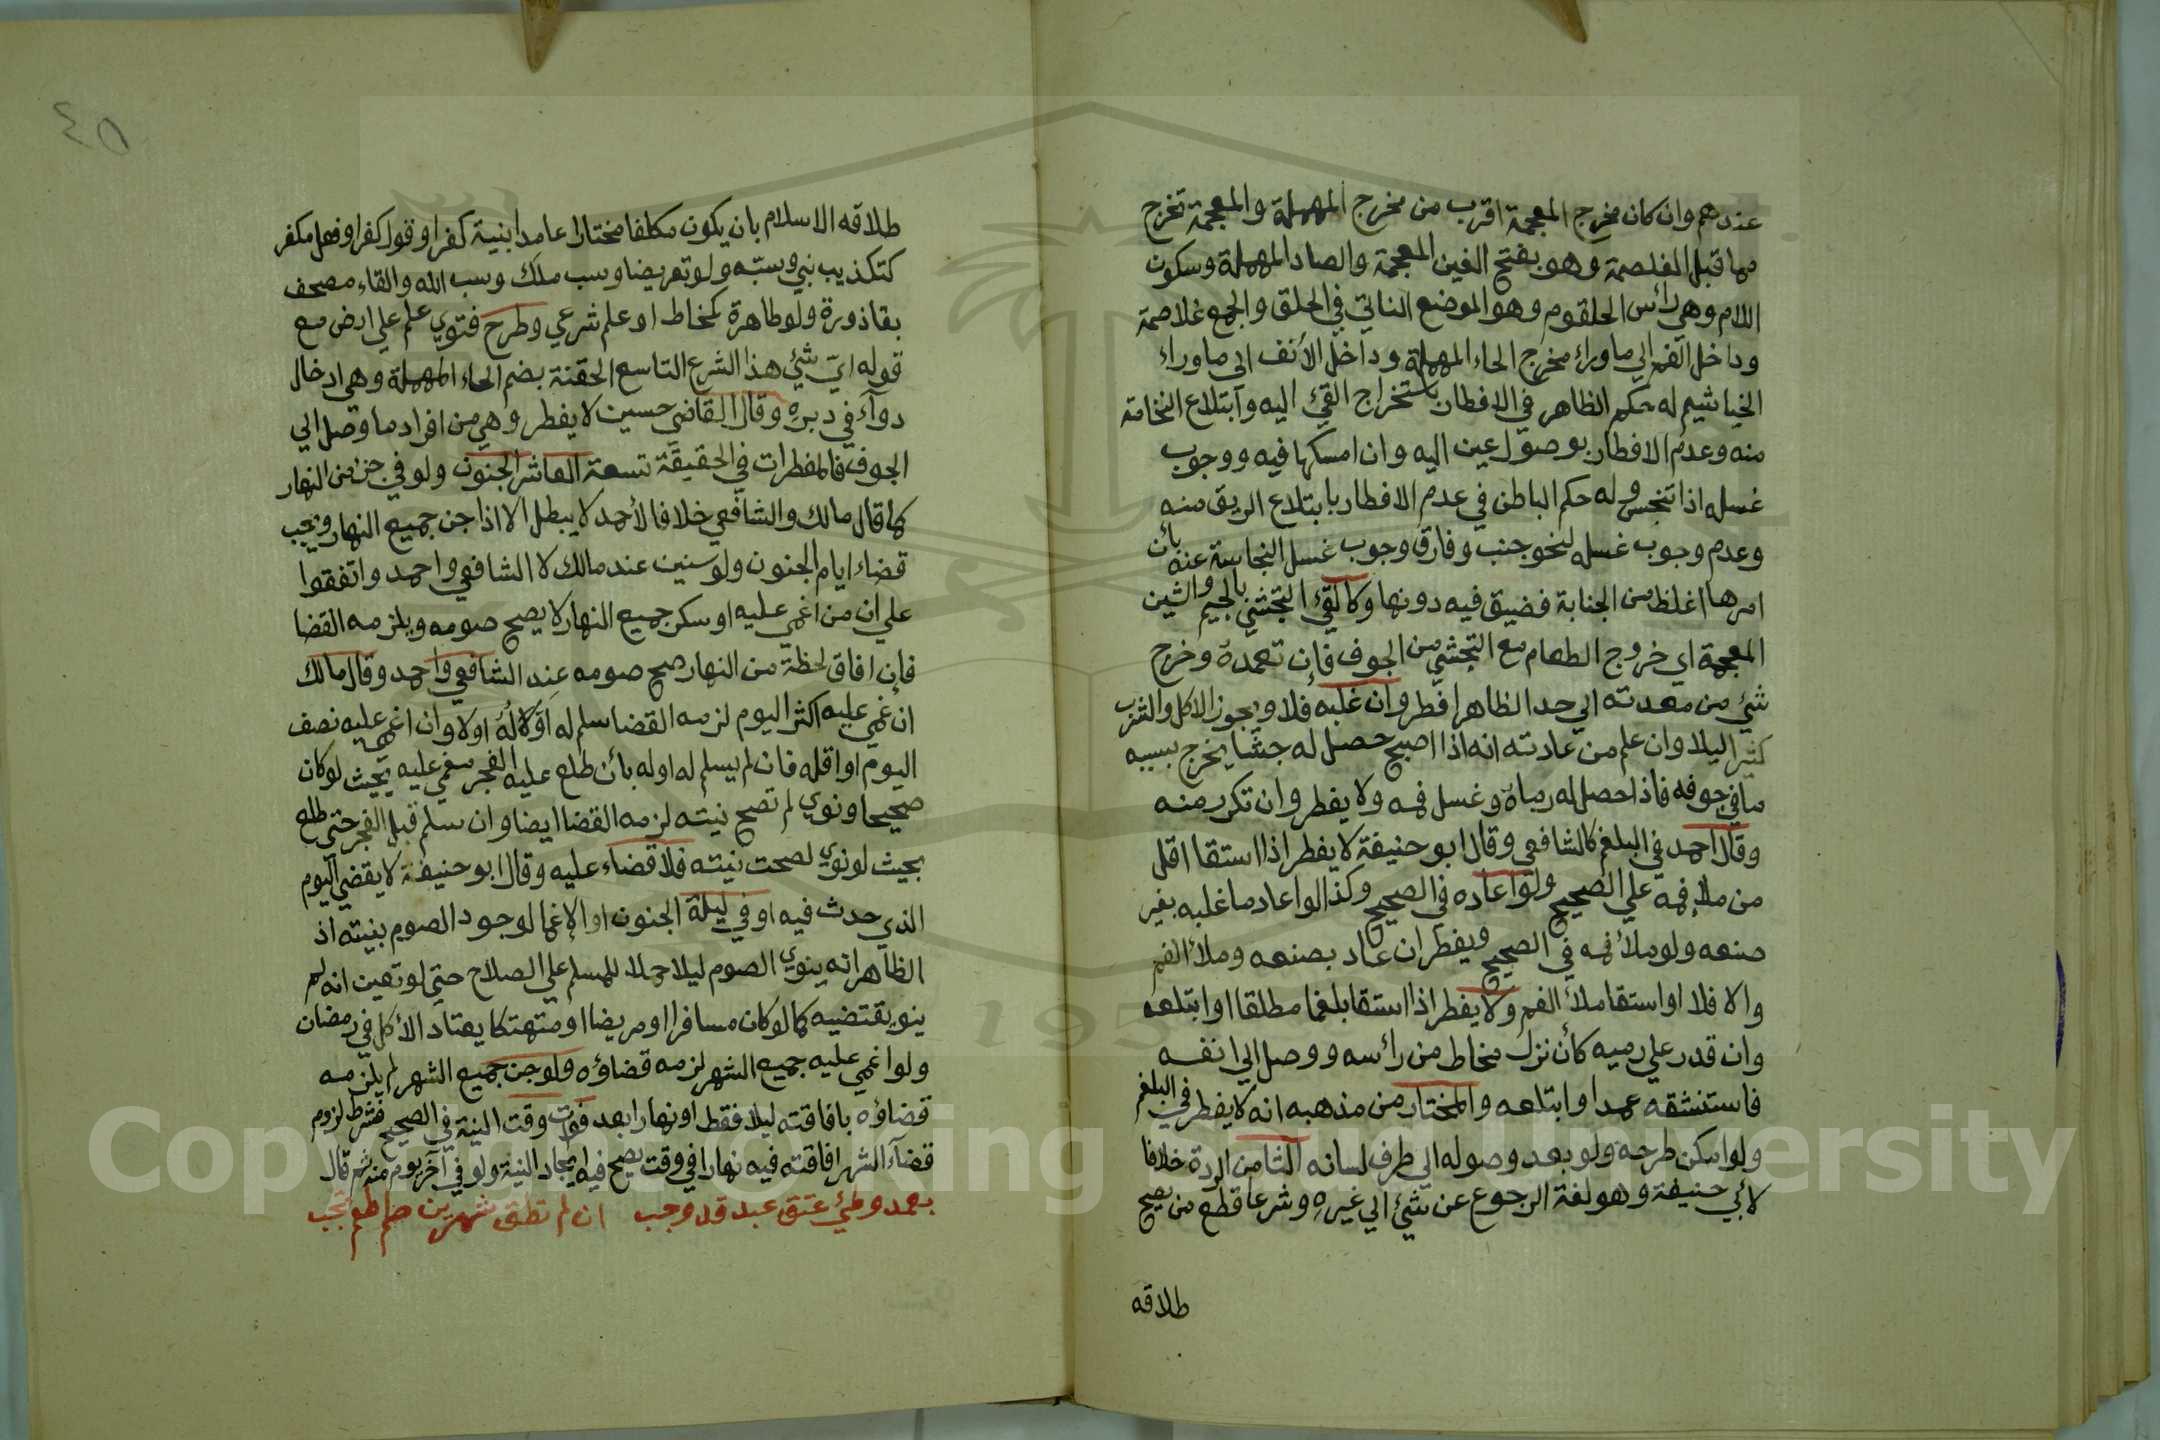 عندهم وان كان مخرج المعجمة اقرب من مخرج المهملة والمعجمة تخرج
مما قبل الغلصمة وهو بفتح الغين المعجمة والصاد المهملة وسكون
اللام وهي رأس الحلقوم وهو الموضع الناتي في الحلق والجمع غلاصمة
وداخل الفم الي ماوراء مخرج الحاء المهملة وداخل الأنف الي ماوراء
الخياشيم له حكم الظاهر في الافطار باستخراج القئ اليه وابتلاع النخامة
منه وعدم الافطار بوصول عين اليه وان امسكها فيه ووجوب
غسله اذا تنجس وله حكم الباطن في عدم الافطار بابتلاع الريق منه
وعدم وجوب غسله لنحو جنب وفارق وجوب غسل النجاسة عنه بأن
امرها اغلظ من الجنابة فضيق فيه دونها وكالقئ التجشي بالجيم والشين
المعجمة اي خروج الطعام مع التجشي من الجوف فإن تعمده وخرج
شئ من معدته الي حد الظاهر افطر وان غلبه فلا ويجوز الاكل والشرب
كثيرا ليلا وان علم من عادته انه اذا اصبح حصل له جشا يخرج بسببه
ما في جوفه فاذا حصل له رماه وغسل فمه ولا يفطر وان تكرر منه
وقال احمد في البلغم كالشافعي وقال ابو حنيفة لا يفطر اذا استقا اقل
من ملإ فمه علي الصحيح ولو اعاده في الصحيح وكذا لو اعاد ما غلبه بغير
صنعه ولو ملأ فمه في الصحيح ويفطر ان عاد بصنعه وملأ الفم
والا فلا او استقا ملأ الفم ولا يفطر اذا استقا بلغما مطلقا او ابتلعه
وان قدر علي رميه كأن نزل مخاط من رأسه ووصل الي انفه
فاستنشقه عمدا وابتلعه والمختار من مذهبه انه لا يفطر في البلغم
ولو امكن طرحه ولو بعد وصوله الي طرف لسانه الثامن الردة خلافا
لأبي حنيفة وهو لغة الرجوع عن شئ الي غيره وشرعا قطع من يصح
طلاقه
٤٥
طلاقه الاسلام بان يكون مكلفا مختارا عامدا بنية كفر او قول كفر او فعل مكفر
كتكذيب نبي وسبّه ولو تعريضا وسب ملك وسب الله والقاء مصحف
بقاذورة ولو طاهرة كمخاط او علم شرعي وطرح فتوي علم علي ارض مع
قوله ايّ شئ هذا الشرع التاسع الحقنة بضم الحاء المهملة وهي ادخال
دواء في دبره وقال القاضي حسين لا يفطر وهي من افراد ما وصل الي
الجوف فالمفطرات في الحقيقة تسعة العاشر الجنون ولو في جزء من النهار
كما قال مالك والشافعي خلافا لأحمد لا يبطل الا اذا جن جميع النهار ويجب
قضاء ايام الجنون ولو سنين عند مالك لا الشافعي واحمد واتفقوا
علي ان من اغمي عليه او سكر جميع النهار لا يصح صومه ويلزمه القضا
فإن افاق لحظة من النهار صح صومه عند الشافعي واحمد وقال مالك
ان غمي عليه اكثر اليوم لزمه القضا سلم له أوّلُهُ او لا وان اغمي عليه نصف
اليوم او اقله فان لم يسلم له اوله بأن طلع عليه الفجر مغمى عليه بحيث لو كان
صحيحا ونوي لم تصح نيته لزمه القضا ايضا وان سلم قبل الفجر حتي طلع
بحيث لو نوي لصحت نيته فلا قضاء عليه وقال ابو حنيفة لا يقضي اليوم
الذي حدث فيه او في ليلة الجنون او الإغما لوجود الصوم بنيته اذ
الظاهر انه ينوي الصوم ليلا حملا للمسلم علي الصلاح حتي لو تعين انه لم
ينو يقتضيه كما لو كان مسافرا او مريضا او متهتكا يعتاد الأكل في رمضان
ولو اغمي عليه جميع الشهر لزمه قضاؤه ولو جن جميع الشهر لم يلزمه
قضاؤه بافاقته ليلا فقط او نهارا بعد فوت وقت النية في الصحيح فشرط لزوم
قضاء الشهر افاقته فيه نهارا في وقت يصح فيه ايجاد النية ولو في آخر يوم منه ثم قال
بعمد وطئ عتق عبد قد وجب ان لم تطق شهرين صم اطعم تجب